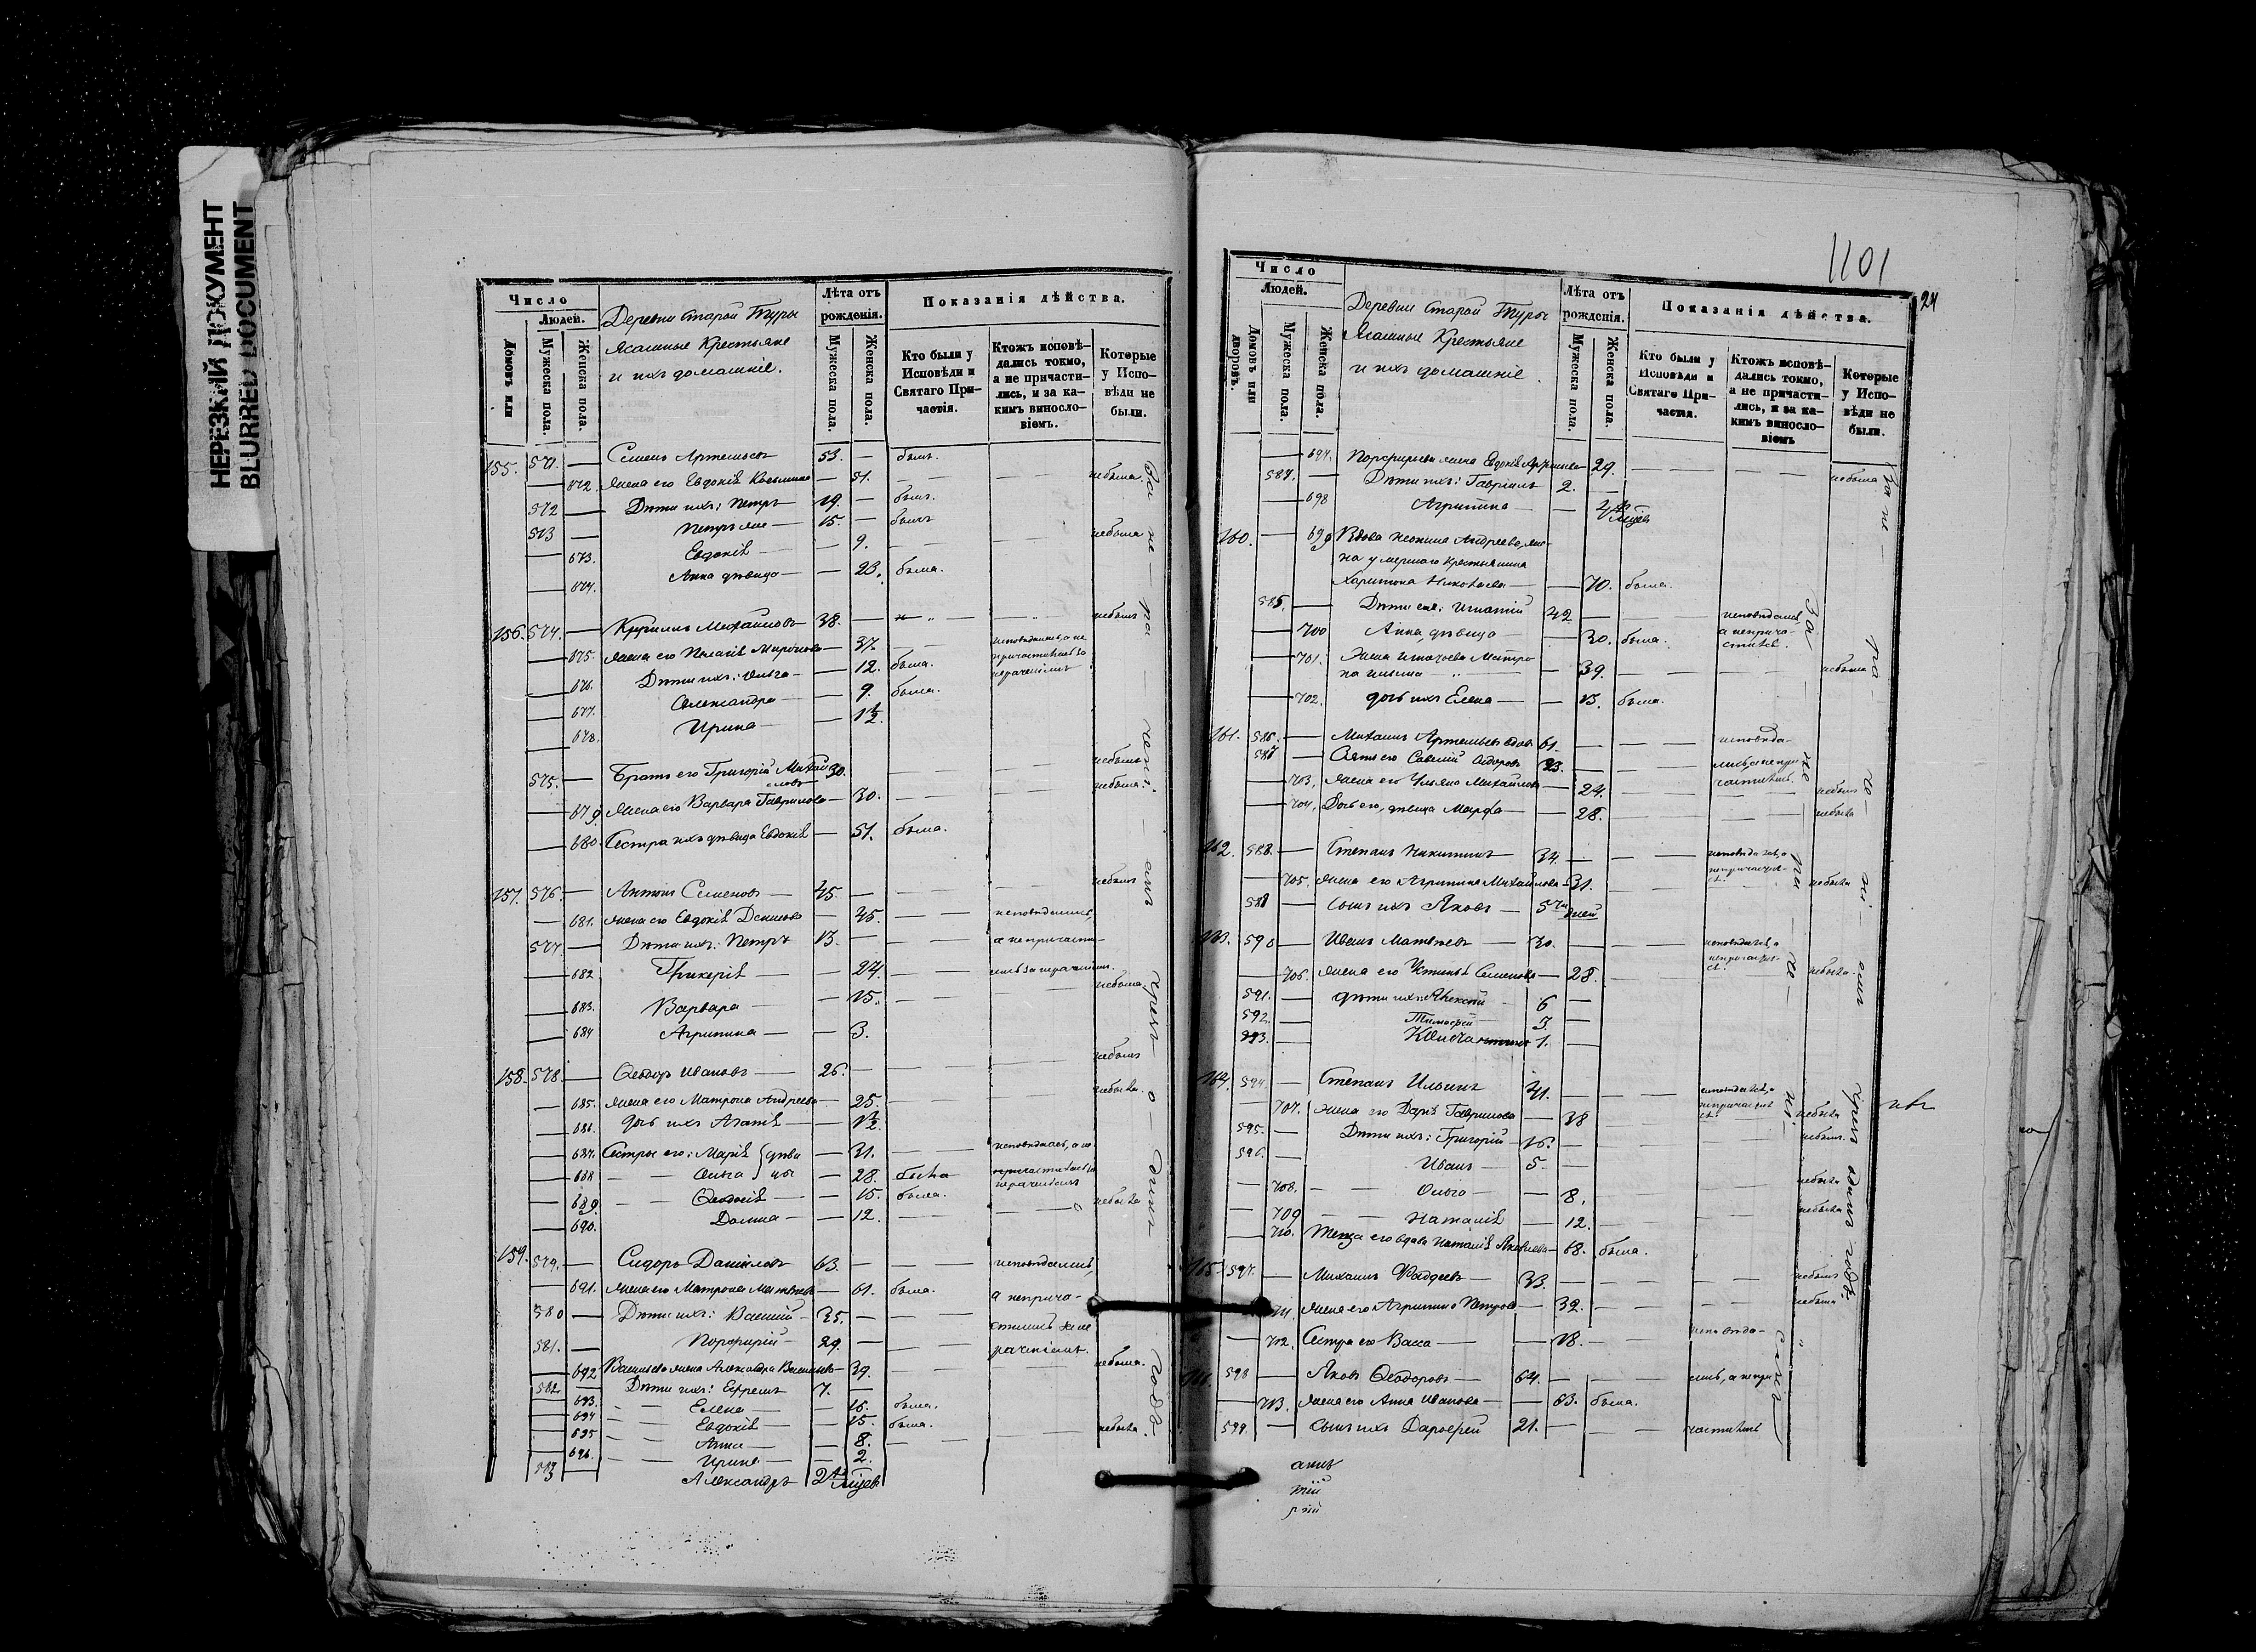 НЕРЕЗКИЙ ДОКУМЕНТ
BLURRED DOCUMENT
Число
Людей.
Домовъ или
Мужеска пола.
Женска пола.
Деревни Старой Туры
Ясашные Крестьяне
и ихъ домашніе.
Лѣта отъ
рожденія.
Мужеска пола.
Женска пола.
Показанія дѣйства.
Кто были у
Исповѣди и
Святаго При-
частія.
Ктожъ исповѣ-
дались токмо,
а не причасти-
лись, и за ка-
кимъ винослo-
віемъ.
Которые
у Испо-
вѣди не
были.
155. 571. — Семенъ Артемьевъ 53. — былъ.
— 672. Жена его Евдокія Козьмина — 51. — — небыла.
572 — Дѣти ихъ: Петръ 19. — былъ.
573 — Петръ же — 15. — былъ
— 673. Евдокія — — 9. — — небыла
— 674. Анна дѣвица — — 23. была.
156. 574. — Кириллъ Михайловъ 38. — небылъ
— 675. Жена его Пелагія Миронова — 37. — исповѣдалась, а не
причастилась за
нераченіемъ
— 676. Дѣти ихъ: Ольга — — 12. была.
— 677. Александра — — 9. была.
— 678. Ирина — — 1½
575. — Братъ его Григорій Михай
ловъ 30. — — небылъ
— 679. Жена его Варвара Гаврилова — 30. — — небыла.
— 680. Сестра ихъ дѣвица Евдокія — 51. была.
157. 576. — Антонъ Семеновъ — 45. — — небылъ
— 681. Жена его Евдокія Денисова — 45. — — исповѣдались,
577. — Дѣти ихъ: Петръ 13. — — а не причасти-
— 682 Гликерія — — 24. — — лись за нераченіем.
— 683. Варвара — 15. — — небыла.
— 684 Агрипина — — 3.
158. 578. — Ѳеодоръ Ивановъ — 26. — — небылъ
— 685. Жена его Матрона Андреева — 25. — — небыла.
— 686. Дочь ихъ Агапія — — 1½
— 687. Сестры его: Марія } дѣви — 31. — — исповѣдалась, а не
— 688 — — Ольга } цы — 28. была причастилась за
нераченіемъ
— 689. — — Ѳеодосія — — 15. была.
— 690. Домна — — 12. — — небыла
159. 579. — Сидоръ Даниловъ 63. — — исповѣдались,
— 691. Жена его Матрона Матвѣева — 61. была.
а неприча-
580 — Дѣти ихъ: Василій — 35. — —
стились за не
581. — Порфирій — 29. — раченіемъ.
— 692 Васильева жена Александра Васильева — 39. — — небыла.
582 — Дѣти ихъ: Ефремъ 7. —
693. — — Елена — — 16. была.
694 — — Евдокія — — 15. была.
695 — — Анна — — 8. — — небыла.
696. — — Ирина — — 2.
583 — Александръ 2хъ мѣсяц.
За не ра чені емъ Хрест о Духо года
1101
24
Число
Людей.
Домовъ или
дворовъ.
Мужеска пола.
Женска пола.
Деревни Старой Туры
Ясашные Крестьяне
и ихъ домашніе.
Лѣта отъ
рожденія.
Мужеска пола.
Женска пола.
Показанія дѣйства.
Кто были у
Исповѣди и
Святаго При-
частія.
Ктожъ исповѣ-
дались токмо,
а не причасти-
лись, и за ка-
кимъ винослo-
віемъ
Которые
у Испо-
вѣди не
были.
— 697. Порфирьева жена Евдокія 29. — — — небыла
584. — Дѣти ихъ: Гавріилъ 2. —
— 698 Агрипина — — 4хъ мѣсяц
160. — 699 Вдова Неонила Андреева, же-
на умершаго крестьянина
Харитона Николаева — — 70. была.
585. — Дѣти ея: Игнатій 42 — — исповѣдался,
— 700 Анна, дѣвица — 30. была. а неприча-
стился.
— 701. Жена Игнатьева Матро
на Ильина — 39. — — — небыла
— 702. дочь ихъ Елена — — 13. была.
161. 586. — Михаилъ Артемьевъ вдов 61. — — исповѣда-
587 — Зять его Савелій Сидоровъ 23. — — лись, а непри
— 703. Жена его Ульяна Михайлова — 24. — частились. небыла
— 704. Дочь его, дѣвица Марѳа — — 28. — — небыла
162. 588. — Степанъ Никитинъ 34. — — исповѣдался, а
непричастил-
ся.
— 705. Жена его Агрипина Михайлова 31. — — небыла
589 — Сынъ ихъ Яковъ — 5ти дней
163. 590 — Иванъ Матвѣевъ — 30. — — исповѣдался, а
непричастил-
ся.
— 706. Жена его Устинья Семенова — 28. — — небыла.
591. — дѣти ихъ: Алексѣй 6 —
592. — Тимофей 3. —
593. — 1. —
164. 594. — Степанъ Ильинъ 41. — — исповѣдался, а
непричастил
ся.
— 707. Жена его Дарья Гаврилова — 38 — — небыла
595. — Дѣти ихъ: Григорій — 16. — — небылъ.
596. — Иванъ — 5. —
— 708. — — Ольга — — 8. — — небыла
— 709 — — Наталія — 12. — — небыла
— 710. Теща его вдова Наталія Яковлева — 68. была.
165. 597. — Михаилъ Фадеевъ — 33. — — — небылъ
711. Жена его Агрипина Петрова — 32. — — небыла
— 712. Сестра его Васса — — 18. — — исповѣда-
598 — Яковъ Ѳеодоровъ — 64. — — лись, а непри
— 713. Жена его Анна Иванова — — 63. была.
599. — Сынъ ихъ Дарофей 21. — — частились